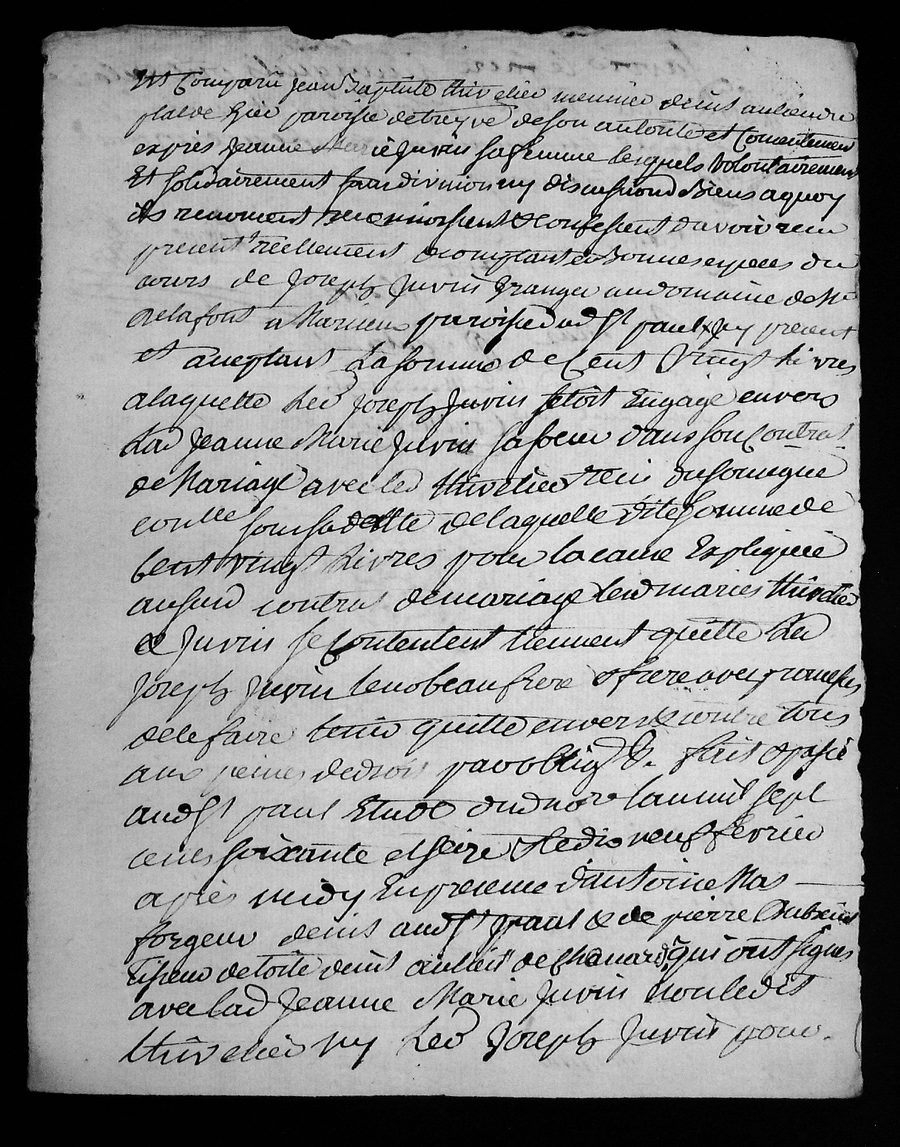 Est Comparu Jean Baptiste thivelier meunier demt au lieu du
plat de Gier paroisse de treyve de son autorité et Consentement
exprès Jeanne Marie Juvin sa femme lesquels Volontairement
Et solidairement sans division ny discusiond Biens a quoy
ils renoncent reconnoissent & confessent d'avoir reçu
presentt réellement & comptant en Bonnes especes du
cours de Joseph Juvin Granger au domaine de Mr
delafont a paroisse dud St paul ey present
et aceptant La somme de Cent Vingt Livres
a laquelle Led Joseph Juvin setoit Engagé envers
Lad Jeanne Marie Juvin sa soeur dans son Contrat
de Mariage avec led thivelier reçu du soussigné
sous sa datte de laquelle dite somme de
Cent vingt Livres pour la cause Expliquée
audit contrat de mariage lesd mariés thivelier
& Juvin se Contentent tiennent quitte Led
Joseph Juvin leur beaufrere & frere avec promesses
de le faire tenir quitte envers & contre tous
aux peines de droit par oblign &c fait & passé
aud St paul Etude dud nore lan mil sept
cents soixante et seize & le dix neuf fevrier
après midy En presence d'antoine Mas
forgeur demt aud St paul & de pierre
tiseur de toile demt au lieu de qui ont signés
avec lad Jeanne Marie Juvin non ledit
thivelier ny Led Joseph Juvin pour